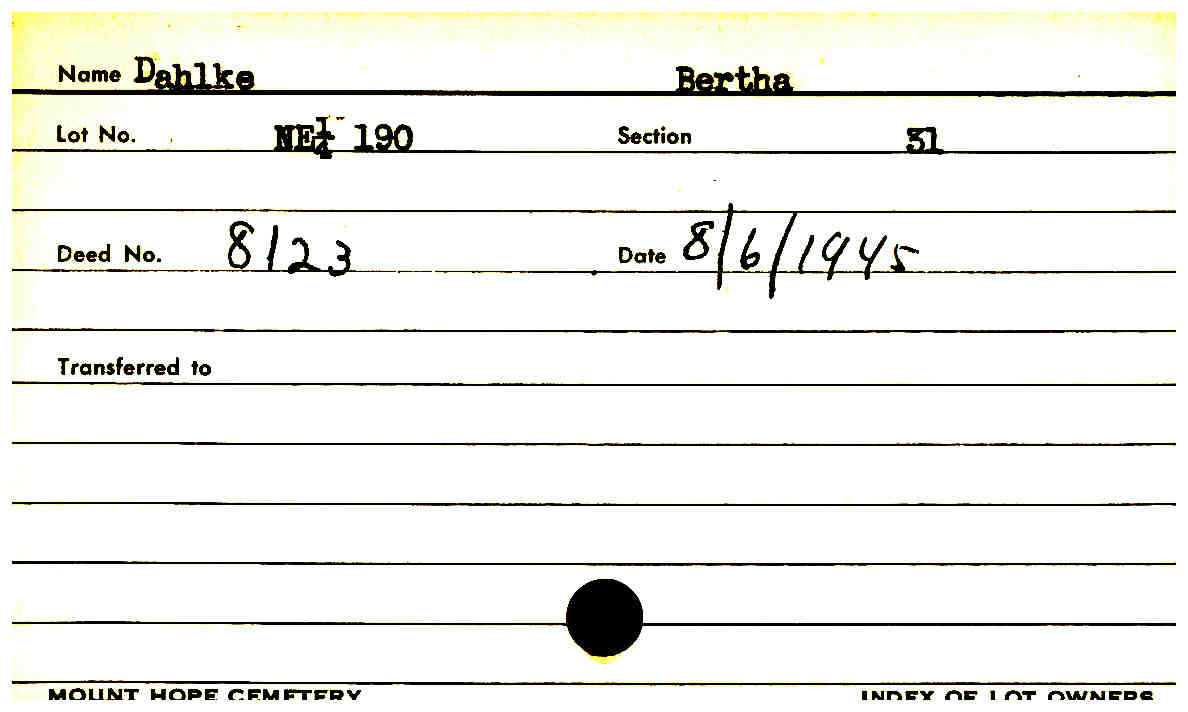 Name Dahlke Bertha
Lot No. NE¼ 190 Section 31
Deed No. 8123 Date 8/6/1945
Transferred to
MOUNT HOPE CEMETERY INDEX OF LOT OWNERS